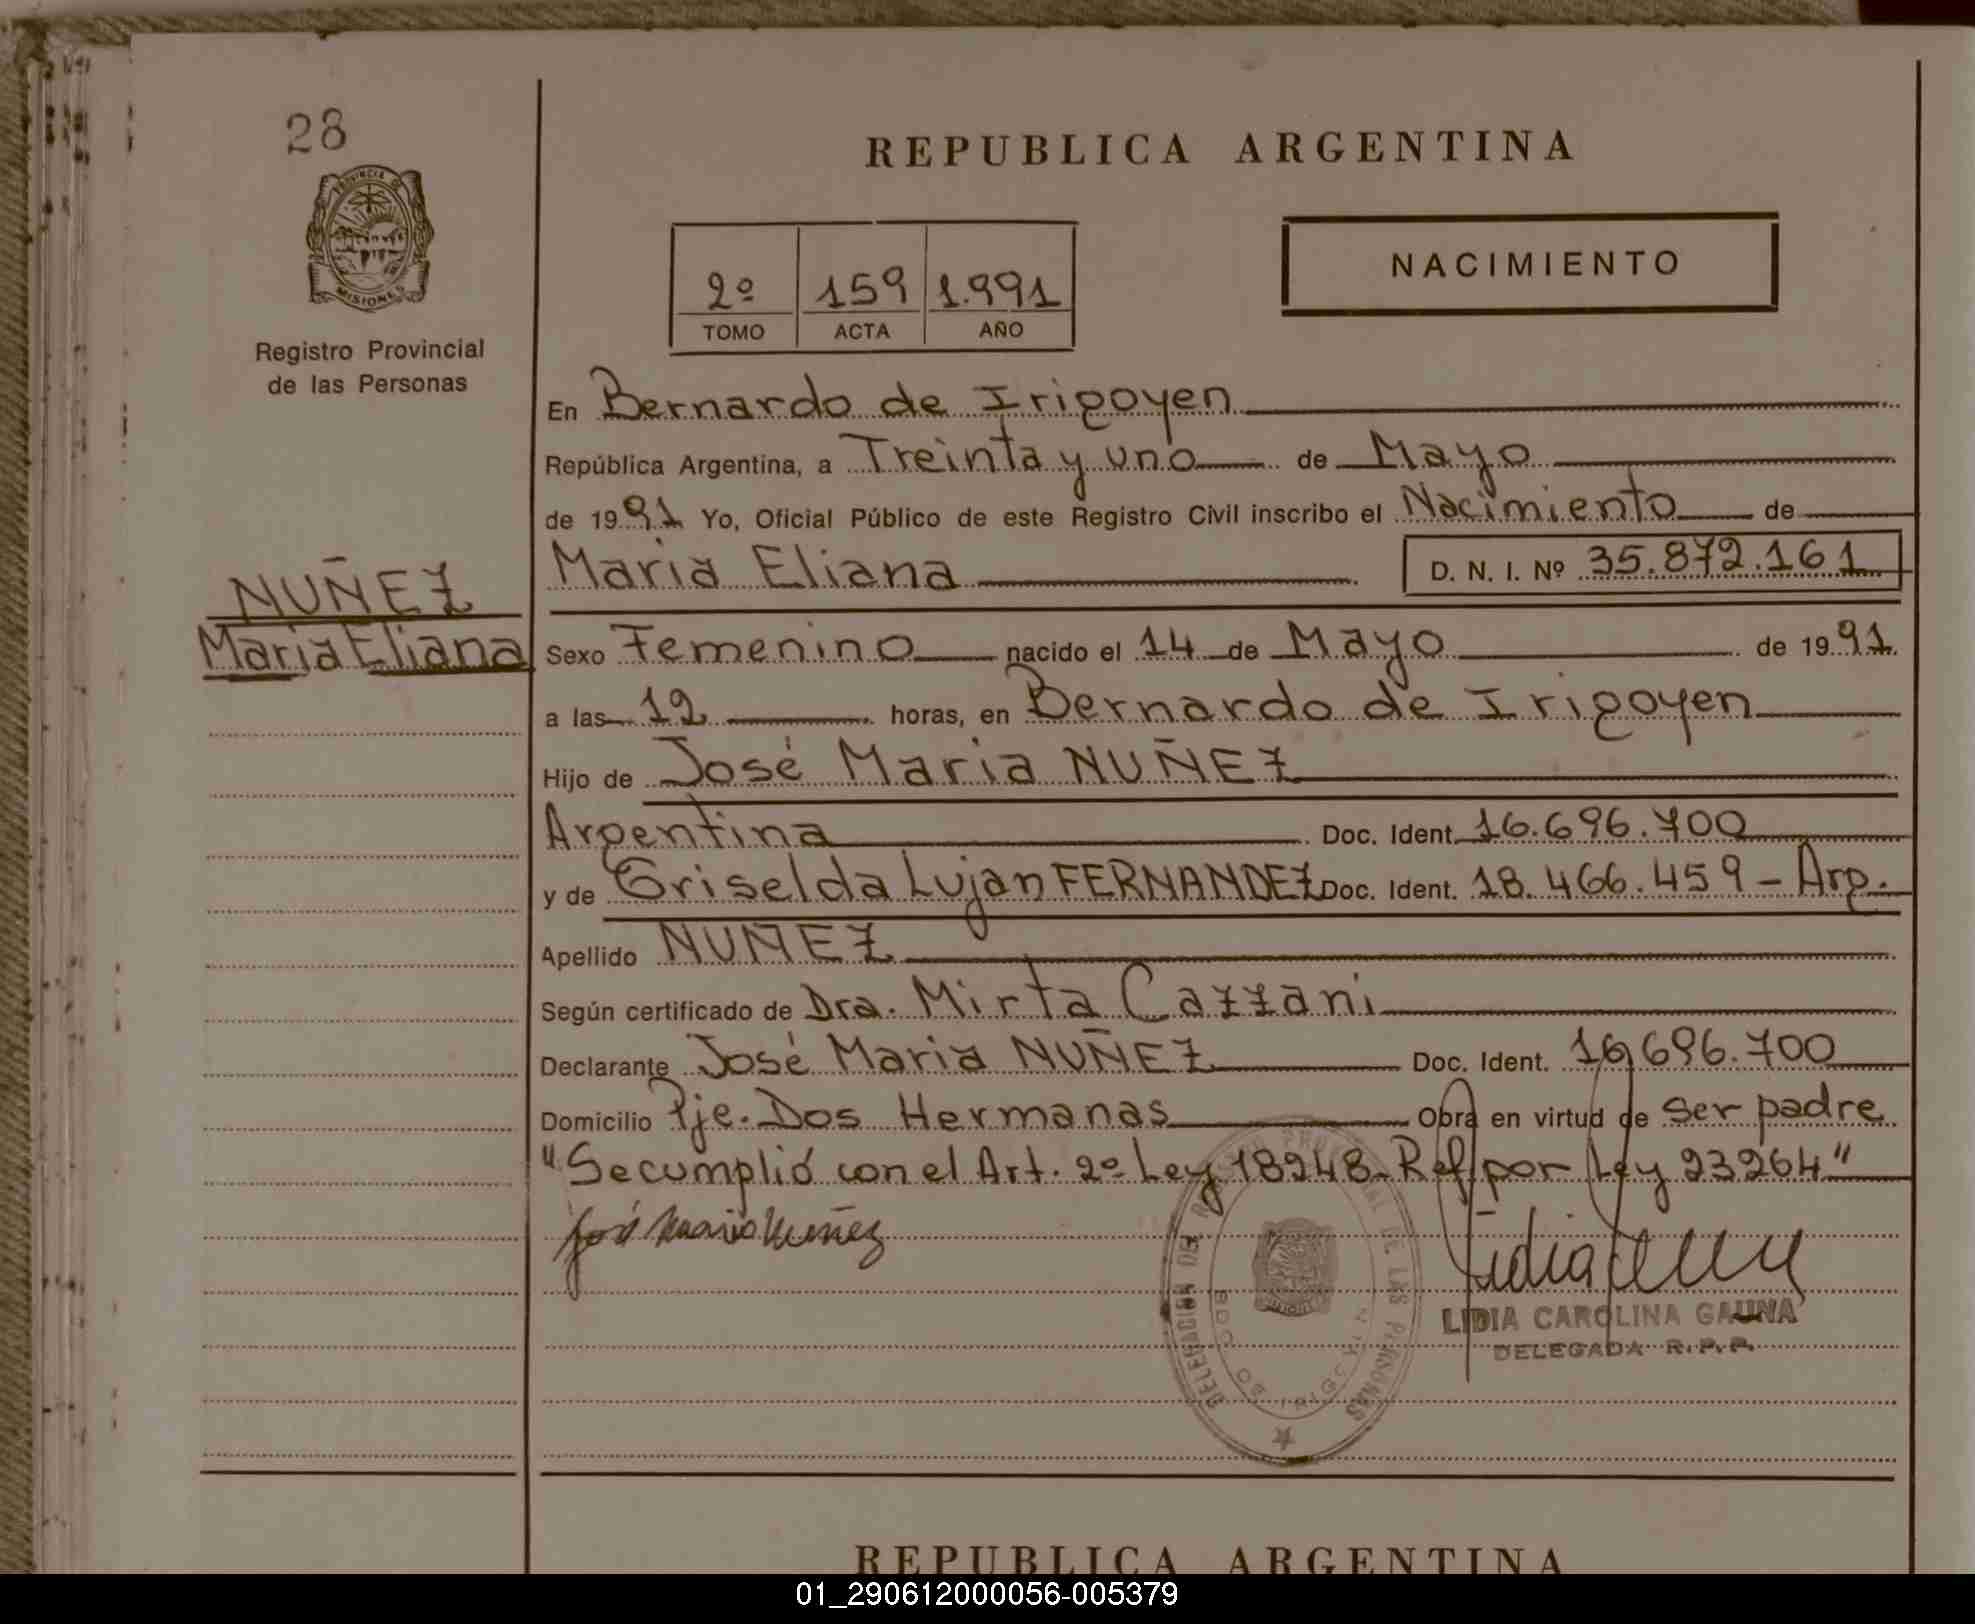 28
PROVINCIA DE
MISIONES
Registro Provincial
de las Personas
NUÑEZ
Maria Eliana
REPUBLICA ARGENTINA
2º 159 1.991
TOMO ACTA AÑO
NACIMIENTO
En Bernardo de Irigoyen
República Argentina, a Treinta y uno de Mayo
de 1991 Yo, Oficial Público de este Registro Civil inscribo el Nacimiento de
Maria Eliana D. N. I. Nº 35.872.161
Sexo Femenino nacido el 14 de Mayo de 1991
a las 12 horas, en Bernardo de Irigoyen
Hijo de José Maria NUÑEZ
Argentina Doc. Ident. 16.696.700
y de Griselda Lujan FERNANDEZ Doc. Ident. 18.466.459 - Arg.
Apellido NUÑEZ
Según certificado de Dra. Mirta Cazzani
Declarante José Maria NUÑEZ Doc. Ident. 16.696.700
Domicilio Pje. Dos Hermanas Obra en virtud de ser padre
"Se cumplió con el Art. 2º Ley 18248 - Ref. por Ley 23264"
José Maria Nuñez
DELEGACION DEL REGISTRO PROVINCIAL DE LAS PERSONAS
BDO. DE IRIGOYEN
LIDIA CAROLINA GAUNA
DELEGADA R.P.P.
REPUBLICA ARGENTINA
01_290612000056-005379